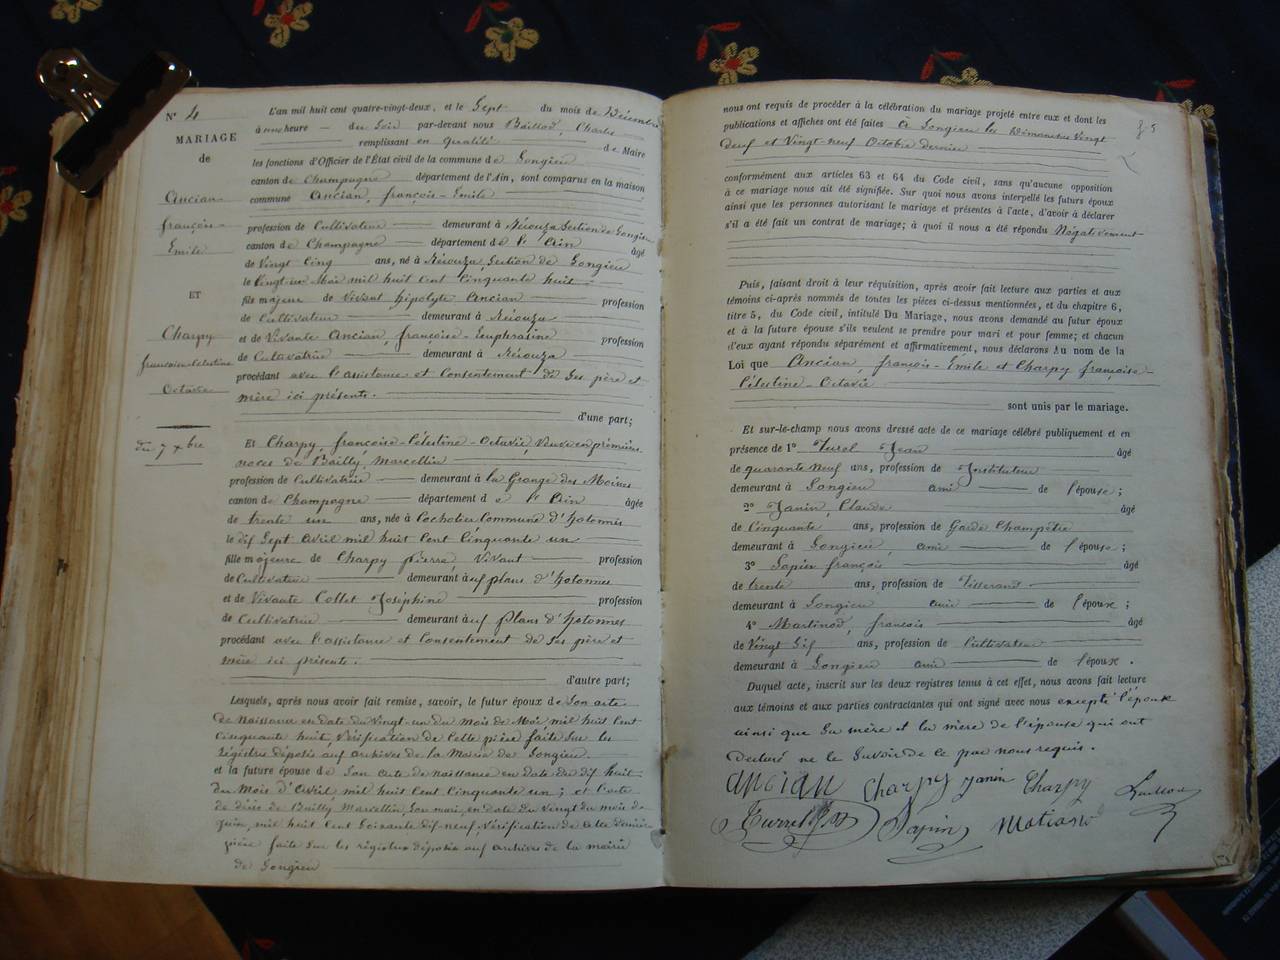 N° 4
MARIAGE
de
Ancian
françois-
Emile
ET
Charpy
françoise-Célestine
Octavie
du 7 xbre
L'an mil huit cent quatre-vingt-deux, et le Sept du mois de Décembre
à une heure du Soir par-devant nous Baillod, Charles
remplissant en qualité de Maire
les fonctions d'Officier de l'État civil de la commune de Songieu
canton de Champagne département de l'Ain, sont comparus en la maison
commune Ancian, françois-Emile
profession de Cultivateur demeurant à Bérouza Section de Songieu
canton de Champagne département de l'Ain âgé
de Vingt Cinq ans, né à Bérouza, Section de Songieu
le Vingt-un Mai mil huit Cent Cinquante huit
fils majeur de Vivant hipolyte Ancian profession
de Cultivateur demeurant à Bérouza
et de Vivante Ancian, françoise-Euphrasine profession
de Cultivatrice demeurant à Bérouza
procédant avec l'assistance et Consentement de Ses père et
mère ici présents.
d'une part;
Et Charpy, françoise-Célestine-Octavie, Veuve en premières
noces de Bailly, Marcellin
profession de Cultivatrice demeurant à la Grange des Moines
canton de Champagne département de l'Ain âgée
de trente un ans, née à Cochatier Commune d'hotonnes
le dix Sept Avril mil huit Cent Cinquante un
fille majeure de Charpy pierre, Vivant profession
de Cultivateur demeurant aux plans d'hotonnes
et de Vivante Collet Joséphine profession
de Cultivatrice demeurant aux Plans d'hotonnes
procédant avec l'assistance et Consentement de Ses père et
mère ici présents.
d'autre part;
Lesquels, après nous avoir fait remise, savoir, le futur époux de Son acte
de Naissance en date du Vingt-un du mois de Mai mil huit Cent
Cinquante huit, Vérification de Cette pièce faite Sur les
régistres déposés aux archives de la Mairie de Songieu.
et la future épouse de Son acte de naissance en date du dix huit
du Mois d'Avril mil huit Cent Cinquante un; et l'acte
de décès de Bailly Marcellin, Son mari, en date du Vingt du mois de
Juin, mil huit Cent Soixante dix-neuf, Vérification de Cette dernière
pièce faite Sur les régistres déposés aux archives de la mairie
de Songieu
nous ont requis de procéder à la célébration du mariage projeté entre eux et dont les
publications et affiches ont été faites à Songieu les Dimanches Vingt
deux et Vingt-neuf Octobre dernier
conformément aux articles 63 et 64 du Code civil, sans qu'aucune opposition
à ce mariage nous ait été signifiée. Sur quoi nous avons interpellé les futurs époux
ainsi que les personnes autorisant le mariage et présentes à l'acte, d'avoir à déclarer
s'il a été fait un contrat de mariage; à quoi il nous a été répondu Négativement
Puis, faisant droit à leur réquisition, après avoir fait lecture aux parties et aux
témoins ci-après nommés de toutes les pièces ci-dessus mentionnées, et du chapitre 6,
titre 5, du Code civil, intitulé Du Mariage, nous avons demandé au futur époux
et à la future épouse s'ils veulent se prendre pour mari et pour femme; et chacun
d'eux ayant répondu séparément et affirmativement, nous déclarons Au nom de la
Loi que Ancian, françois-Emile et Charpy françoise-
Célestine-Octavie
sont unis par le mariage.
Et sur-le-champ nous avons dressé acte de ce mariage célébré publiquement et en
présence de 1° Turel Jean âgé
de quarante neuf ans, profession de Instituteur
demeurant à Songieu ami de l'épouse;
2° Janin, Claude âgé
de Cinquante ans, profession de Garde Champêtre
demeurant à Songieu, ami de l'épouse;
3° Sapin françois âgé
de trente ans, profession de Tisserand
demeurant à Songieu ami de l'épouse;
4° Martinod, françois âgé
de Vingt Six ans, profession de Cultivateur
demeurant à Songieu ami de l'épouse.
Duquel acte, inscrit sur les deux registres tenus à cet effet, nous avons fait lecture
aux témoins et aux parties contractantes qui ont signé avec nous excepté l'époux
ainsi que Sa mère et la mère de l'épouse qui ont
déclaré ne le Savoir de ce par nous requis.
ancian Charpy Janin Charpy
Turrel Sapin